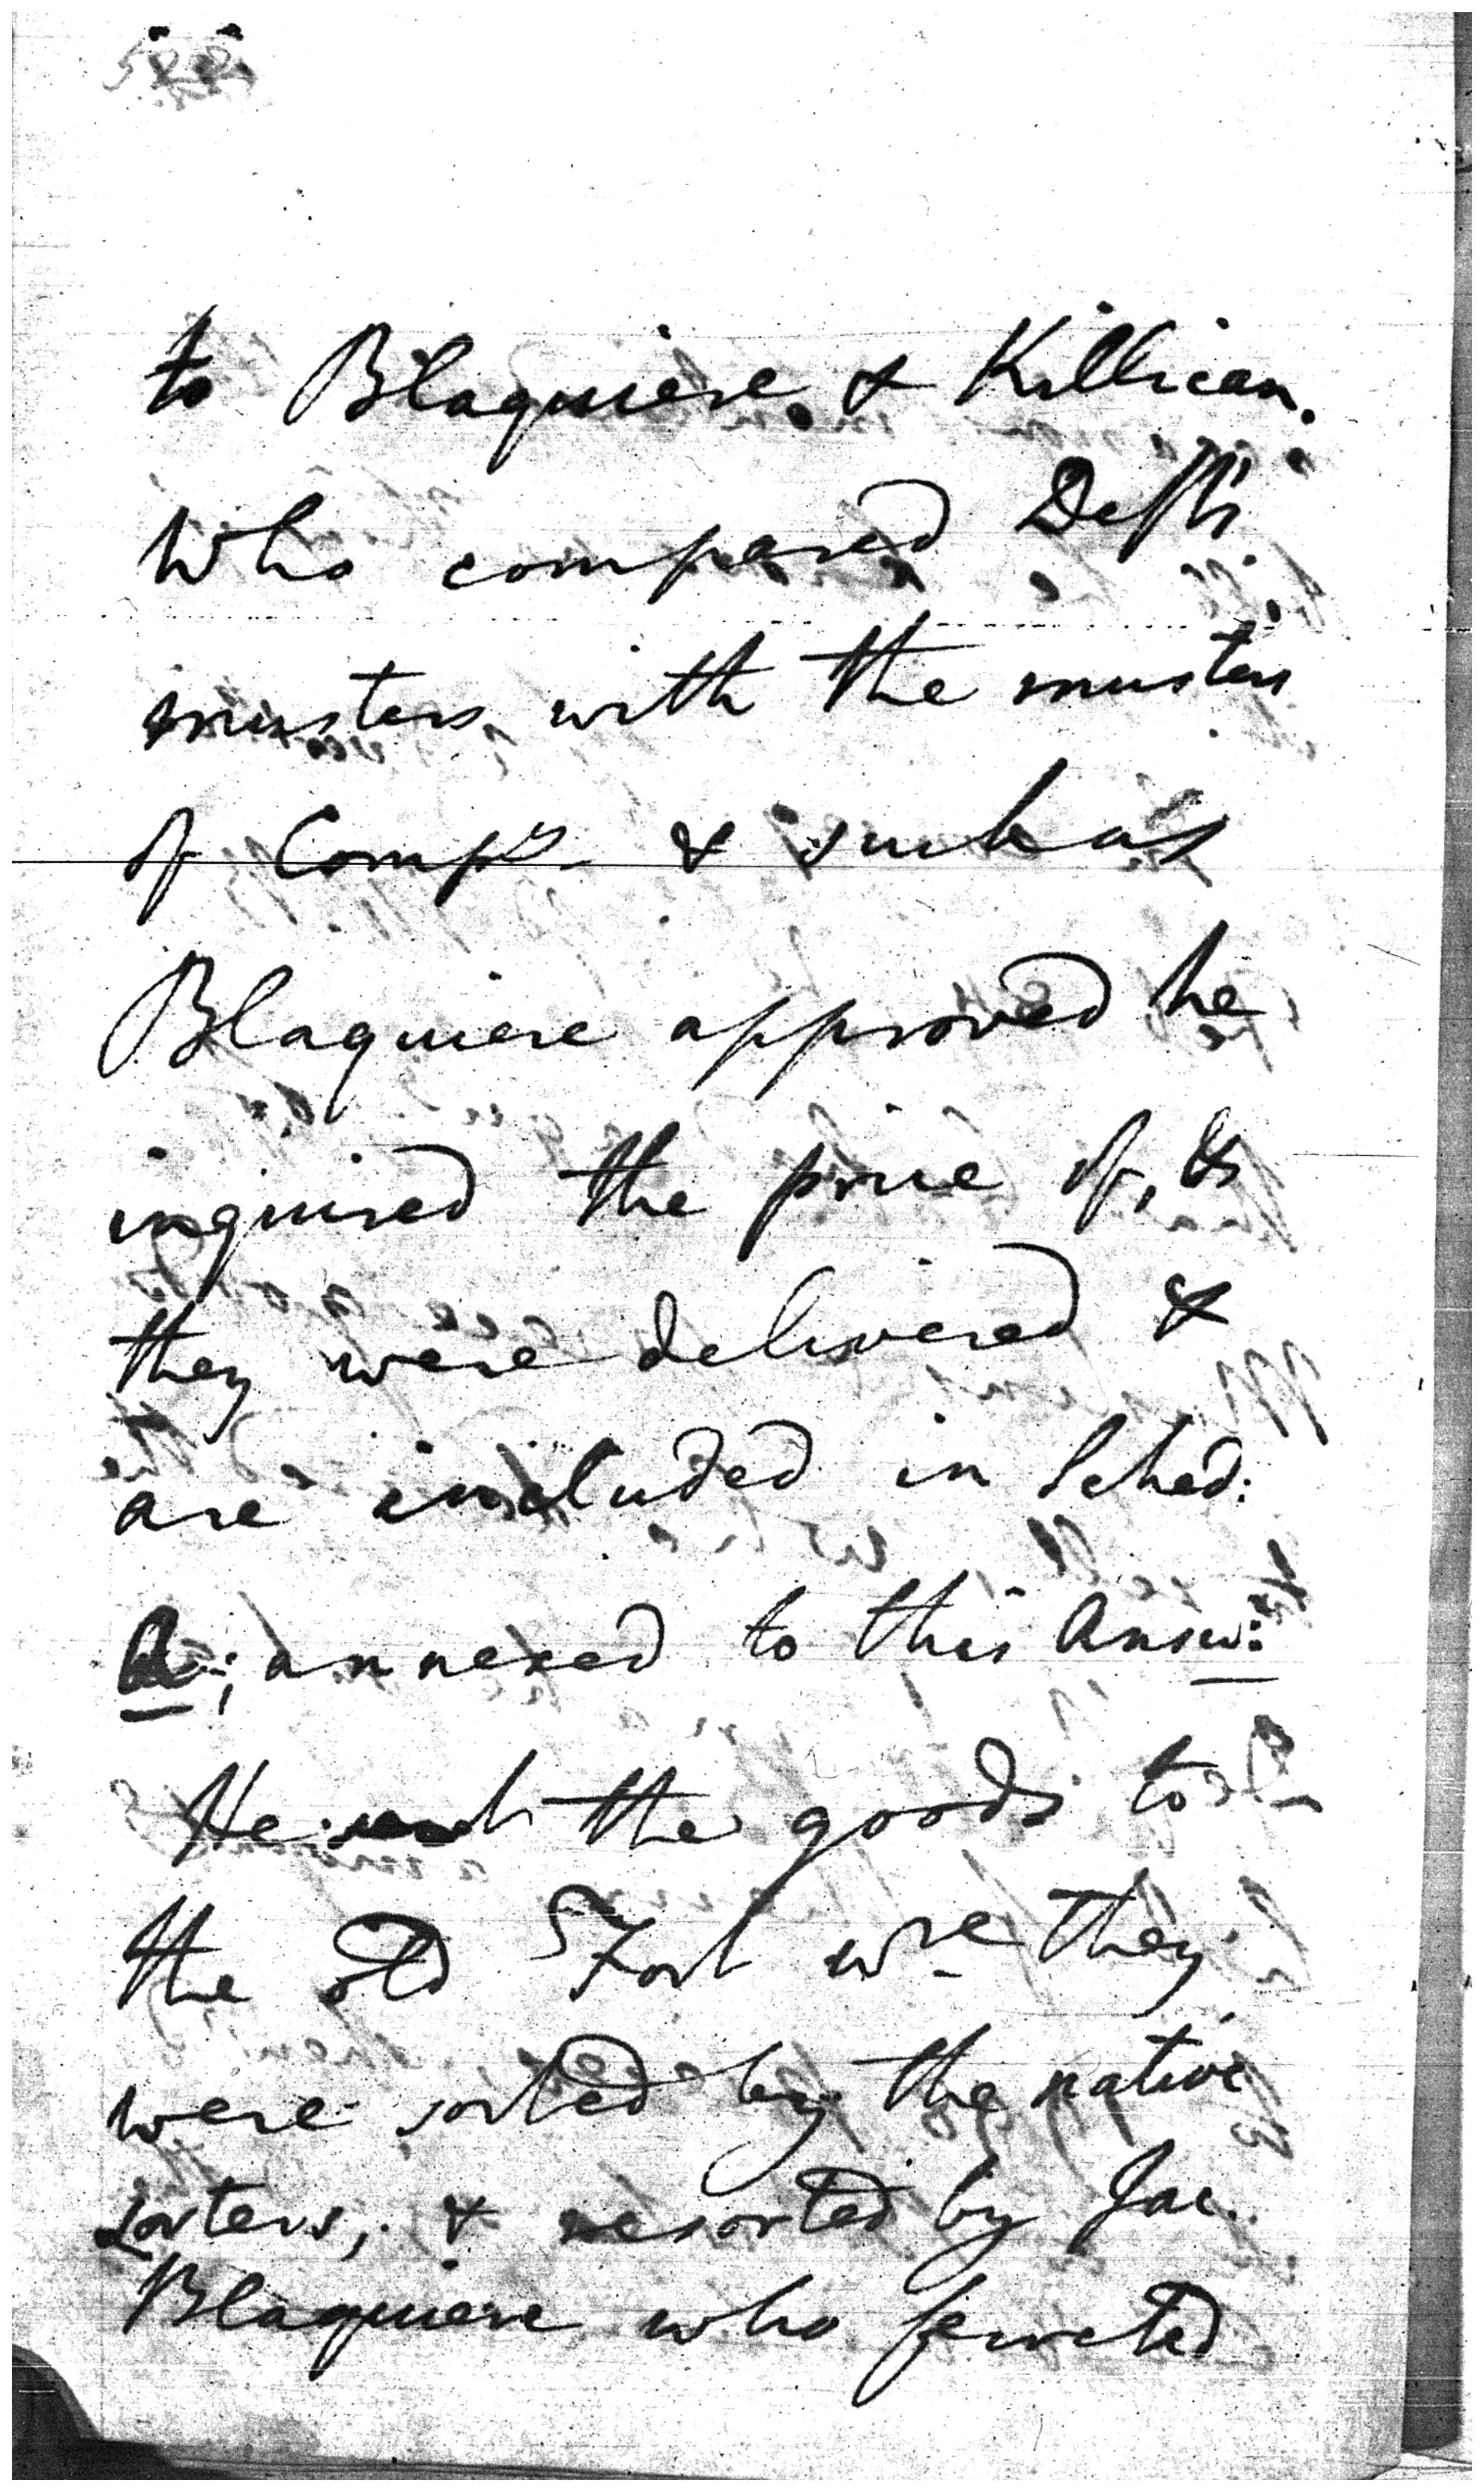 to Blaquiere & Killican.
Who compared Defts
musters with the musters
of Compys & such as
Blaquiere approved he
inquired the price of, &
they were delivered &
are included in Sched:
A; annexed to this Answ:
He sent the goods to
the old Fort wre they
were sorted by the native
sorters, & resorted by Jac.
Blaquiere who